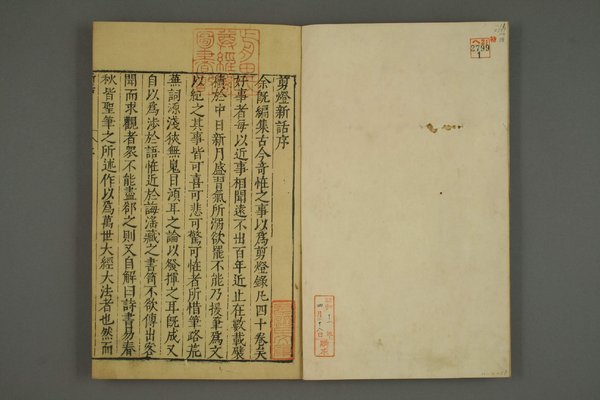 剪燈新話序
余既編集古今竒恠之事以爲剪燈錄凡四十卷矣
好事者每以近事相聞遠不出百年近止在數載襞
積於中日新月盛習氣所溺欲罷不能乃援筆爲文
以紀之其事皆可喜可悲可驚可恠者所惜筆路荒
蕪詞源淺狹無嵬目鴻耳之論以發揮之耳既成又
自以爲涉於語恠近於誨淫藏之書笥不欲傳出客
聞而求觀者衆不能盡郤之則又自解曰詩書易春
秋皆聖筆之所述作以爲萬世大經大法者也然而
2799
1